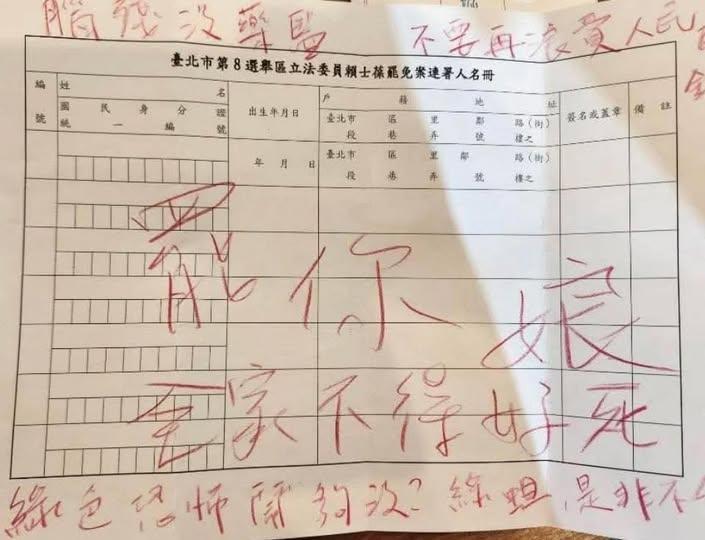 腦殘沒藥醫 不要再浪費人民
臺北市第8選舉區立法委員賴士葆罷免案連署人名冊
編號 姓名 出生年月日 戶籍地址 簽名或蓋章 備註
國民身分證統一編號 臺北市 區 里 鄰 路(街) 段 巷 弄 號 樓之
年 月 日 臺北市 區 里 鄰 路(街)
段 巷 弄 號 樓之
罷你娘
全家不得好死
綠色恐怖鬧夠沒?綠蛆是非不